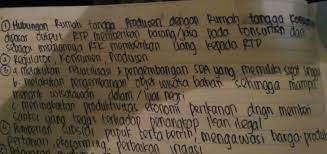 ① Hubungan Rumah tangga Produsen dengan Rumah tangga Konsumen
output RTP memberikan barang/jasa pada konsumen dan
sebagai RTK memberikan uang kepada RTP
② Regulator, Konsumen, Produsen
③ a. melakukan & pengembangan SDA yang memiliki
b. melakukan pengembangan objek wisata bahari sehingga mampu
menarik wisatawan dalam / luar negri
c. meningkatkan produktivitas ekonomi perikanan dngn memberi
sanksi yang tegas terhadap penangkap ikan ilegal
④ subsidi pupuk serta benih, mengawasi harga produk
pertanian perbaikan irigasi